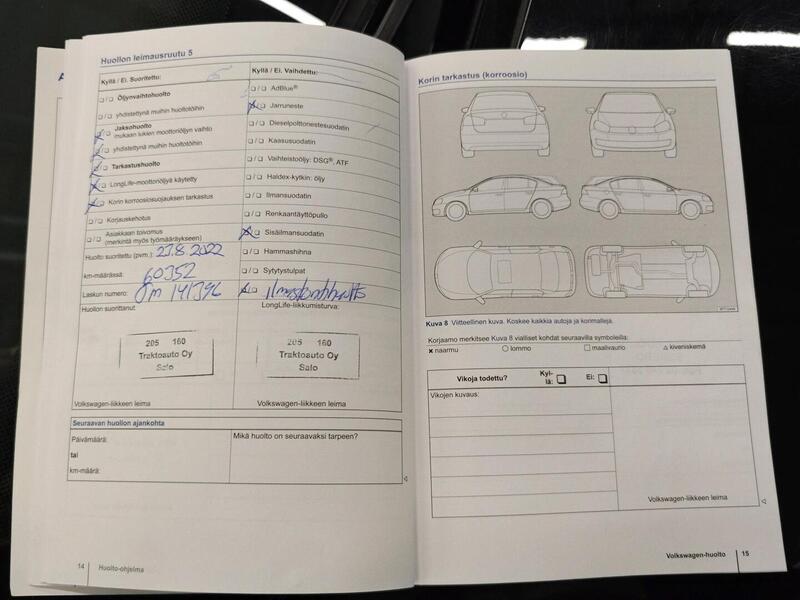 Huollon leimausruutu 5
Kyllä / Ei. Suoritettu:
❏/❏ Öljynvaihtohuolto
❏/❏ yhdistettynä muihin huoltotöihin
Jaksohuolto
mukaan lukien moottoriöljyn vaihto
yhdistettynä muihin huoltotöihin
Tarkastushuolto
LongLife-moottoriöljyä käytetty
Korin korroosiosuojauksen tarkastus
❏/❏ Korjauskehotus
❏/❏ Asiakkaan toivomus
(merkintä myös työmääräykseen)
Huolto suoritettu (pvm.): 23.8.2022
km-määrässä: 60352
Laskun numero: 141396
Huollon suorittanut:
205 160
Traktoauto Oy
Salo
Volkswagen-liikkeen leima
Kyllä / Ei. Vaihdettu:
❏/❏ AdBlue®
Jarruneste
❏/❏ Dieselpolttonestesuodatin
❏/❏ Kaasusuodatin
❏/❏ Vaihteistoöljy: DSG®, ATF
❏/❏ Haldex-kytkin: öljy
❏/❏ Ilmansuodatin
❏/❏ Renkaantäyttöpullo
Sisäilmansuodatin
❏/❏ Hammashihna
❏/❏ Sytytystulpat
LongLife-liikkumisturva:
205 160
Traktoauto Oy
Salo
Volkswagen-liikkeen leima
Seuraavan huollon ajankohta
Päivämäärä:
tai
km-määrä:
Mikä huolto on seuraavaksi tarpeen?
14 Huolto-ohjelma
Korin tarkastus (korroosio)
Kuva 8 Viitteellinen kuva. Koskee kaikkia autoja ja korimalleja.
Korjaamo merkitsee Kuva 8 vialliset kohdat seuraavilla symboleilla:
✖ naarmu ○ lommo □ maalivaurio △ kiveniskemä
Vikoja todettu? Kyl-
lä: ❏ Ei: ❏
Vikojen kuvaus:
Volkswagen-liikkeen leima
Volkswagen-huolto 15